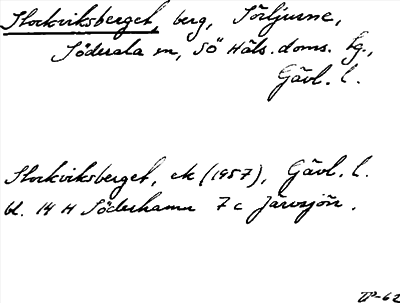 Stockviksberget, berg, Sörljusne,
Söderala sn, SÖ Häls. doms. fg.,
Gävl. l.
Stockviksberget, ek (1957), Gävl. l.
bl. 14 H Söderhamn 7 c Järvsjön.